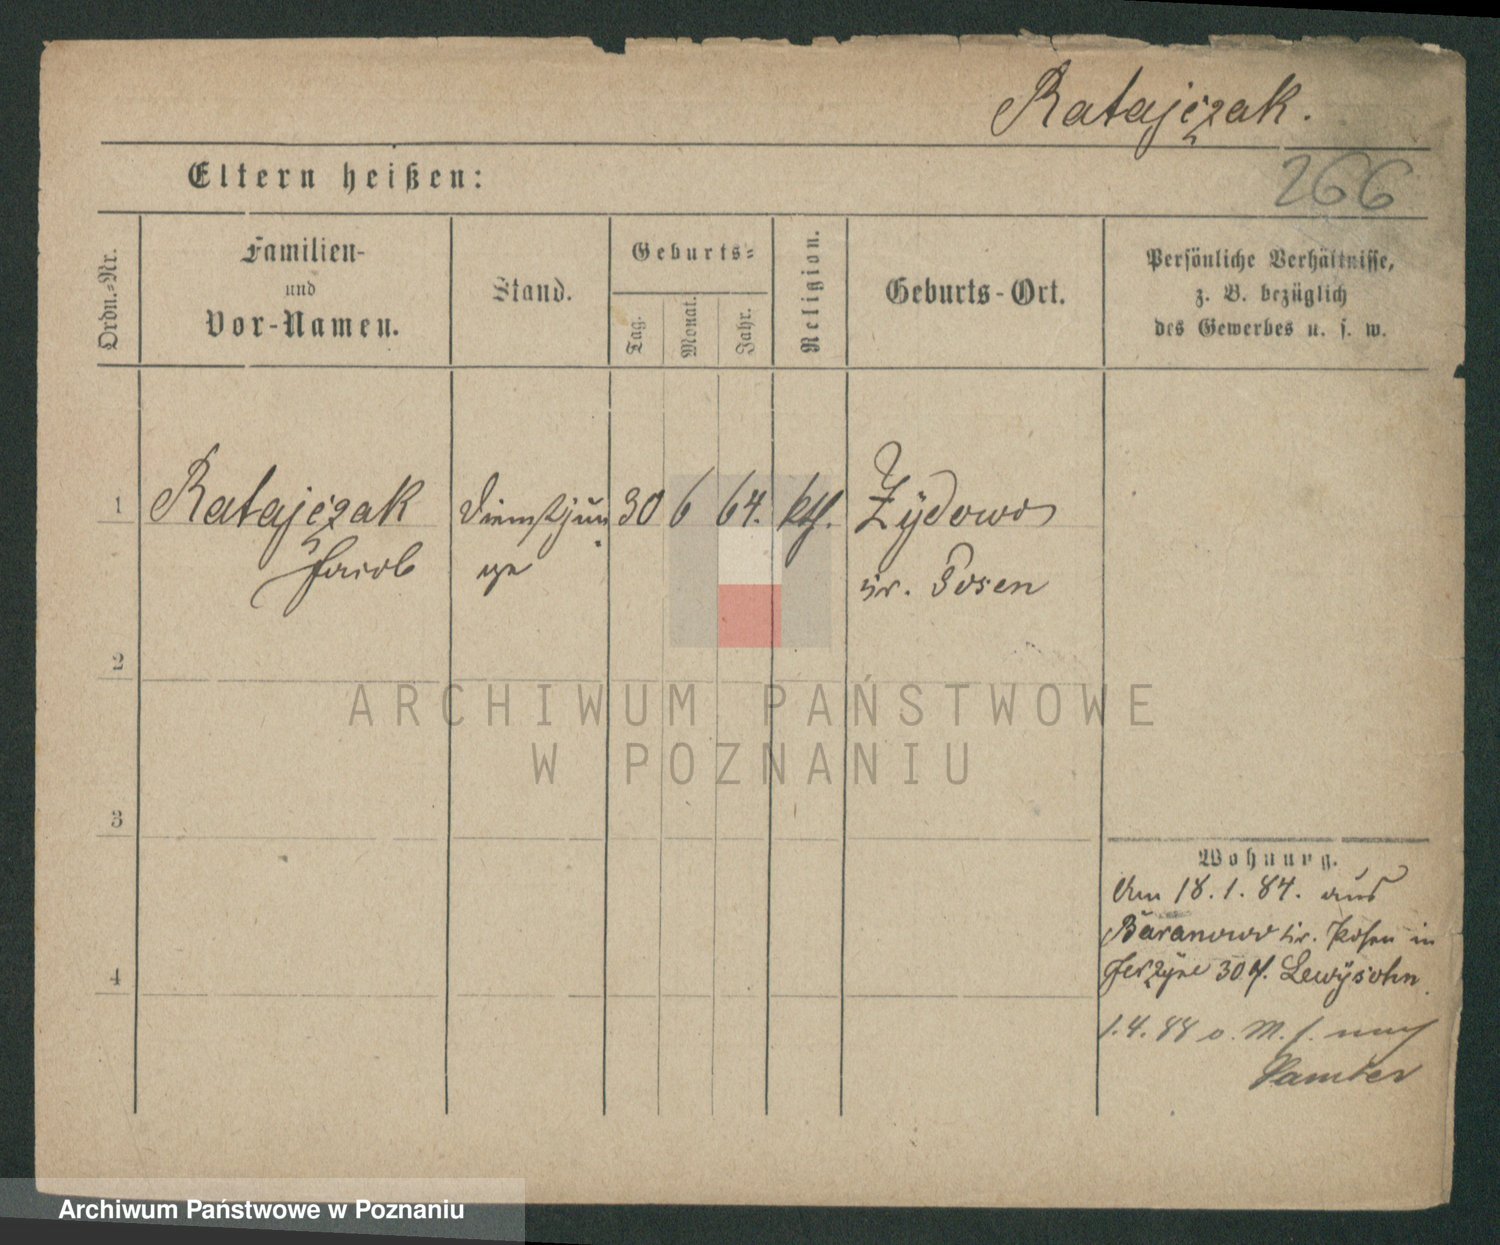 Ratajczak.
266
Eltern heißen:
Ordn.-Nr.
Familien-
und
Vor-Namen.
Stand.
Geburts-
Tag.
Monat.
Jahr.
Religion.
Geburts-Ort.
Persönliche Verhältnisse,
z. B. bezüglich
des Gewerbes u. s. w.
1 Ratajczak Dienstjun 30 6 64. kth. Żydowo
Jacob ge Kr. Posen
2
ARCHIWUM PAŃSTWOWE
W POZNANIU
3
Wohnung.
Am 18.1.84. aus
Baranowo Kr. Posen in
Jerzyce 30 Lewysohn.
4
1.4.88 o. M. f. nach
Samter
Archiwum Państwowe w Poznaniu